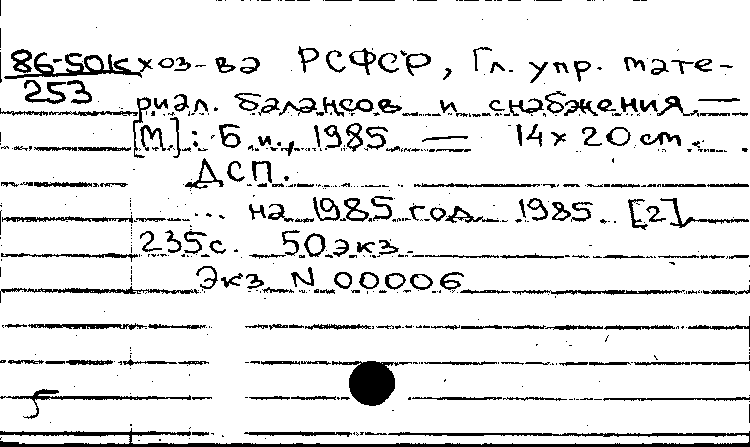 86-50К хоз-ва РСФСР, Гл. упр. мате-
253 риал. балансов и снабжения. —
[М]: Б.и., 1985. — 14х20 cm.
ДСП.
... на 1985 год. 1985. [2],
235с. 50экз.
Экз. N 00006